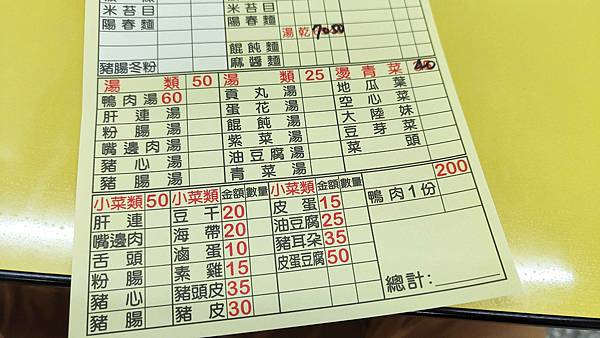 米苔目 米苔目
陽春麵 陽春麵
湯 乾 70 50
餛飩麵
豬腸冬粉 麻醬麵
湯類 50 湯類 25 燙青菜 40
鴨肉湯 60 貢丸湯 地瓜葉
肝連湯 蛋花湯 空心菜
粉腸湯 餛飩湯 大陸妹
嘴邊肉湯 紫菜湯 豆芽菜
豬心湯 油豆腐湯 菜頭
豬腸湯 青菜湯
小菜類 50 小菜類 金額 數量 小菜類 金額 數量 200
肝連 豆干 20 皮蛋 15 鴨肉1份
嘴邊肉 海帶 20 油豆腐 25
舌頭 滷蛋 10 豬耳朵 35
粉腸 素雞 15 皮蛋豆腐 50
豬心 豬頭皮 35
豬腸 豬皮 30 總計: